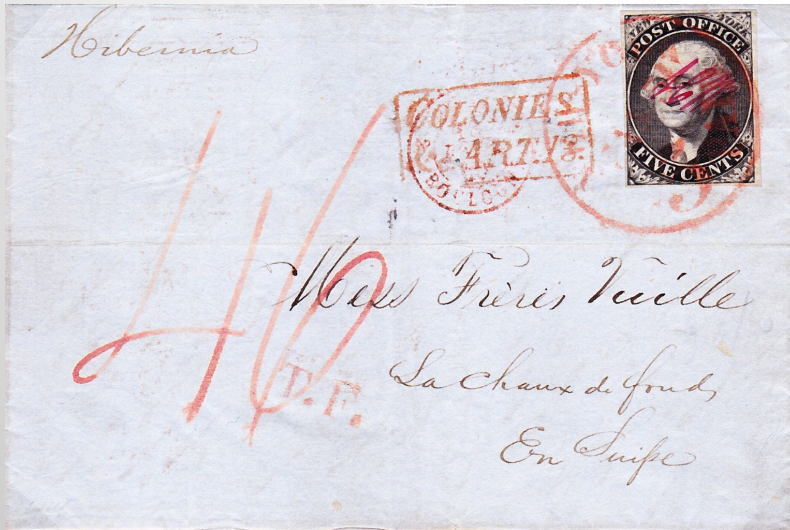 Hibernia
POST OFFICE
FIVE CENTS
COLONIES
&c. ART. 13.
BOULOGNE
5
46
Mess Frères Vuille
La Chaux de fonds
En Suiſse
T.F.